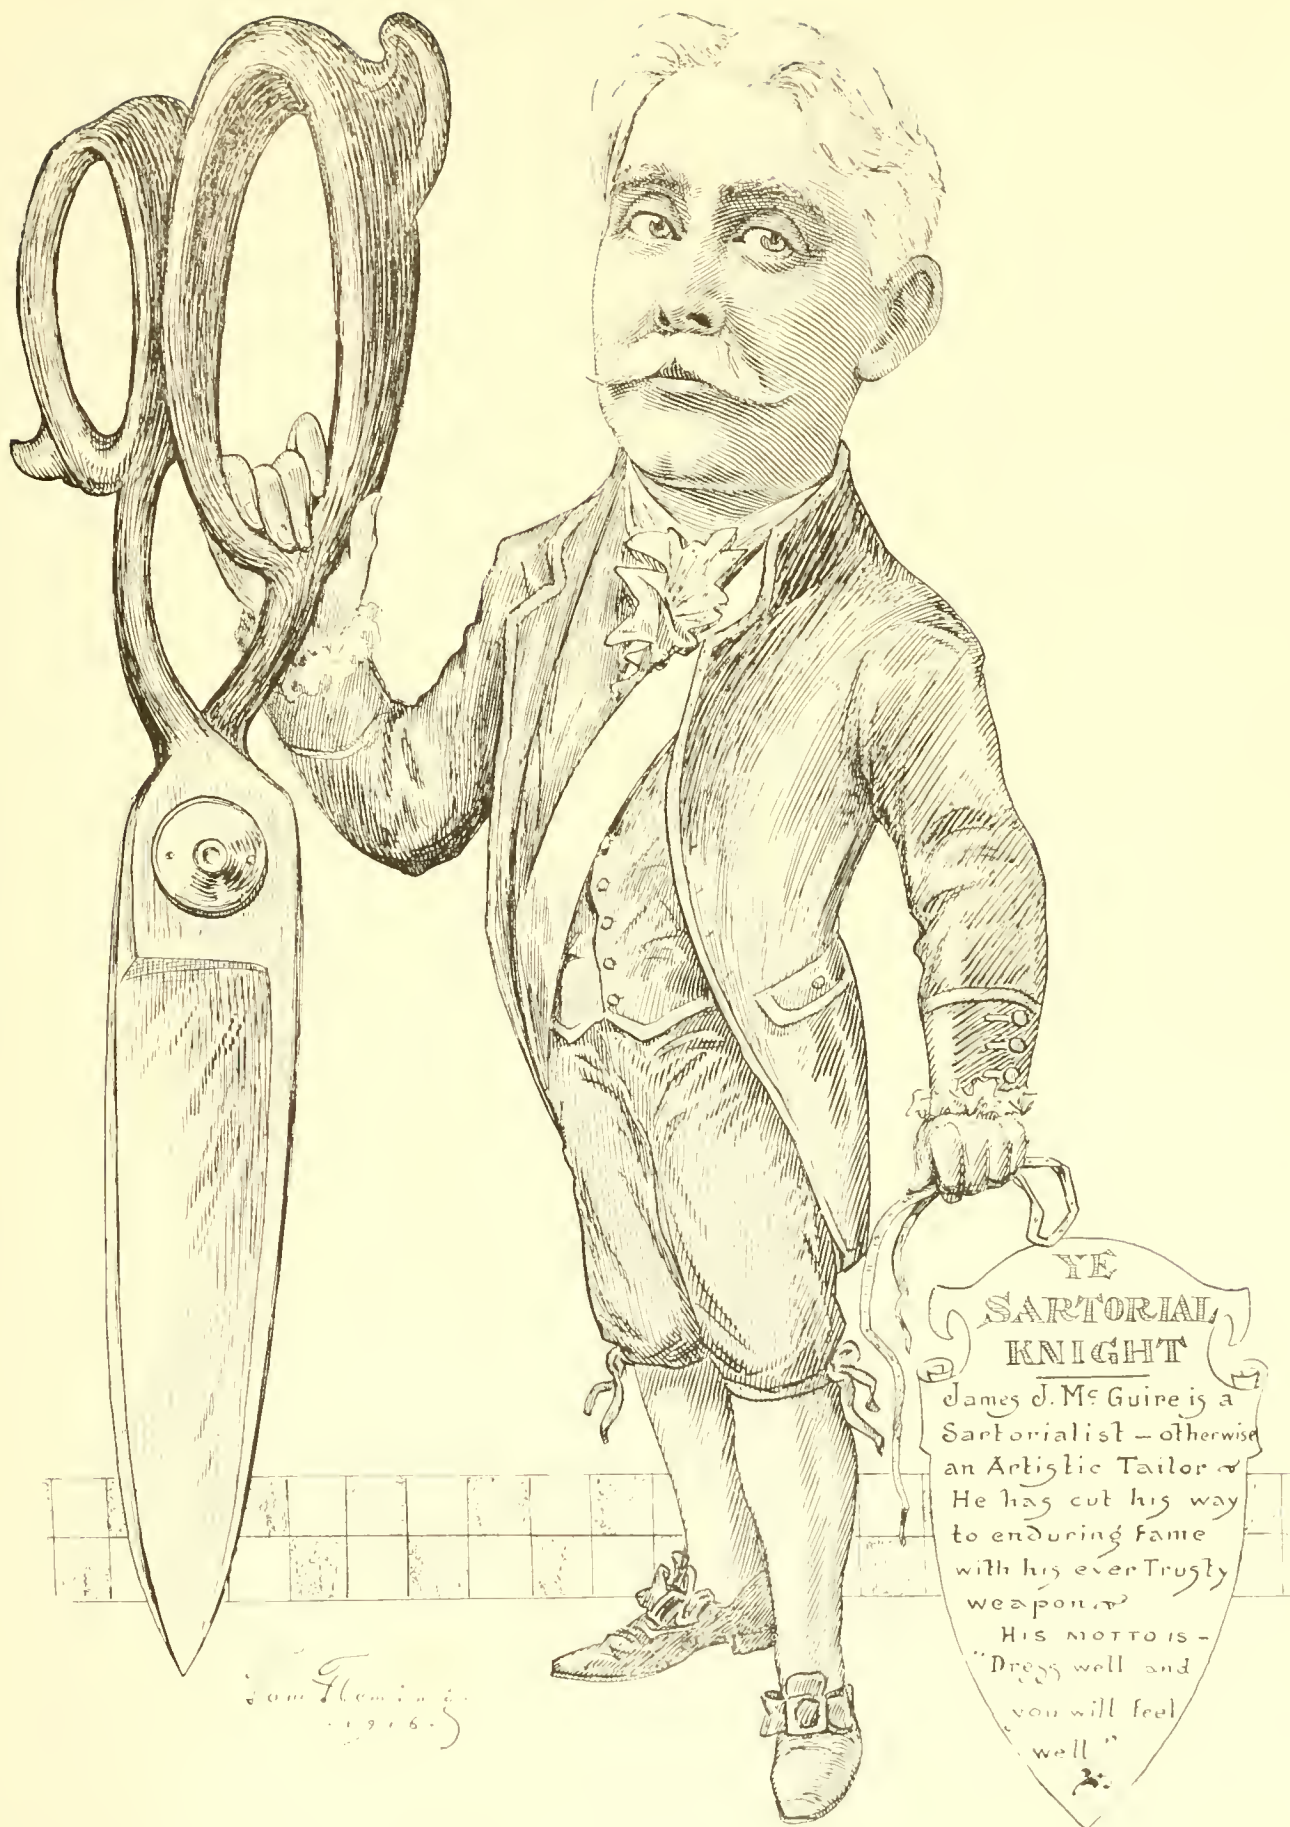 YE
SARTORIAL
KNIGHT
James J. Mc Guire is a
Sartorialist – otherwise
an Artistic Tailor
He has cut his way
to enduring fame
with his ever Trusty
weapon.
HIS MOTTO IS –
"Dress well and
you will feel
well"
Tom Fleming.
·1916·